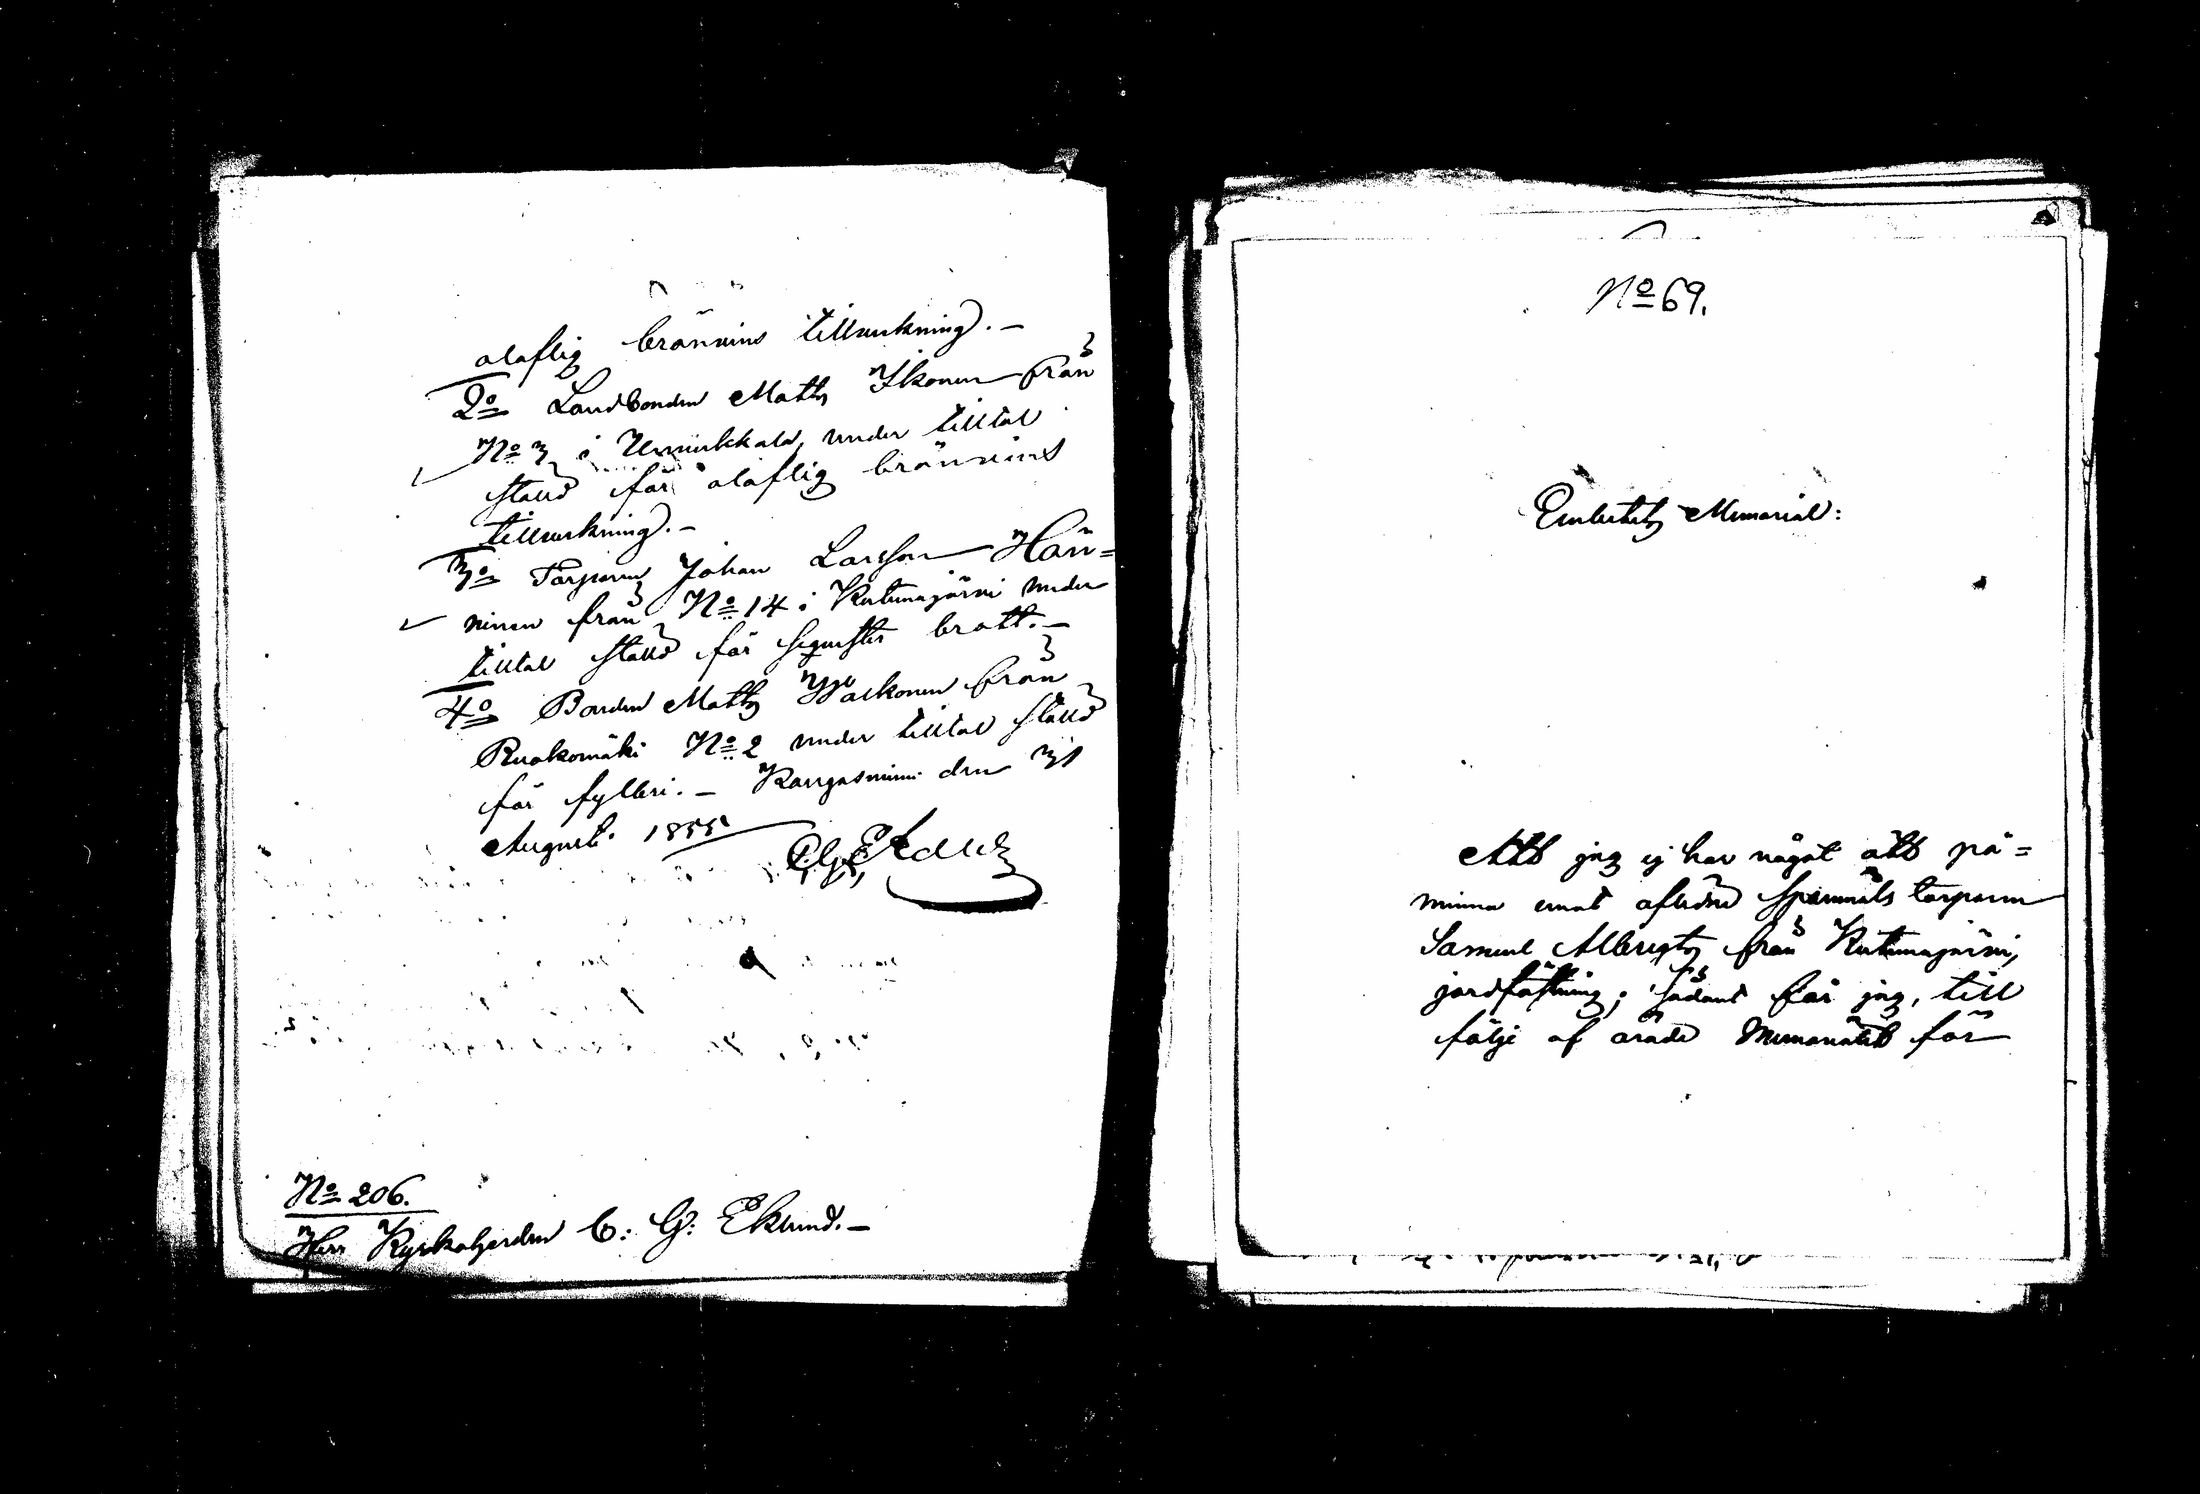 olaflig bränvins tillverkning. –
2o Landbonden Matts Ikonen från
No 3 i Unnukkala, under tilltal
ställd för olaflig bränvins
tillverkning. –
3o Torparen Johan Larsson Hän=
ninen från No 14 i Kutumajärvi under
tilltal ställd för sequester brott. –
4o Bonden Matts Waskonen från
Ruokomäki No 2 under tilltal ställd
för fylleri. – Kangasniemi den 31
Augusti 1855
C. G. Eklund
No 206.
Herr Kyrkoherden C: G: Eklund. –
No 69.
Embetets Memorial:
Att jag ej har något att på=
minna emot aflidne spanmåls torparen
Samuel Albregts från Kutumajärvi,
jordfästning; sådant får jag, till
följe af ärade Memorialet för